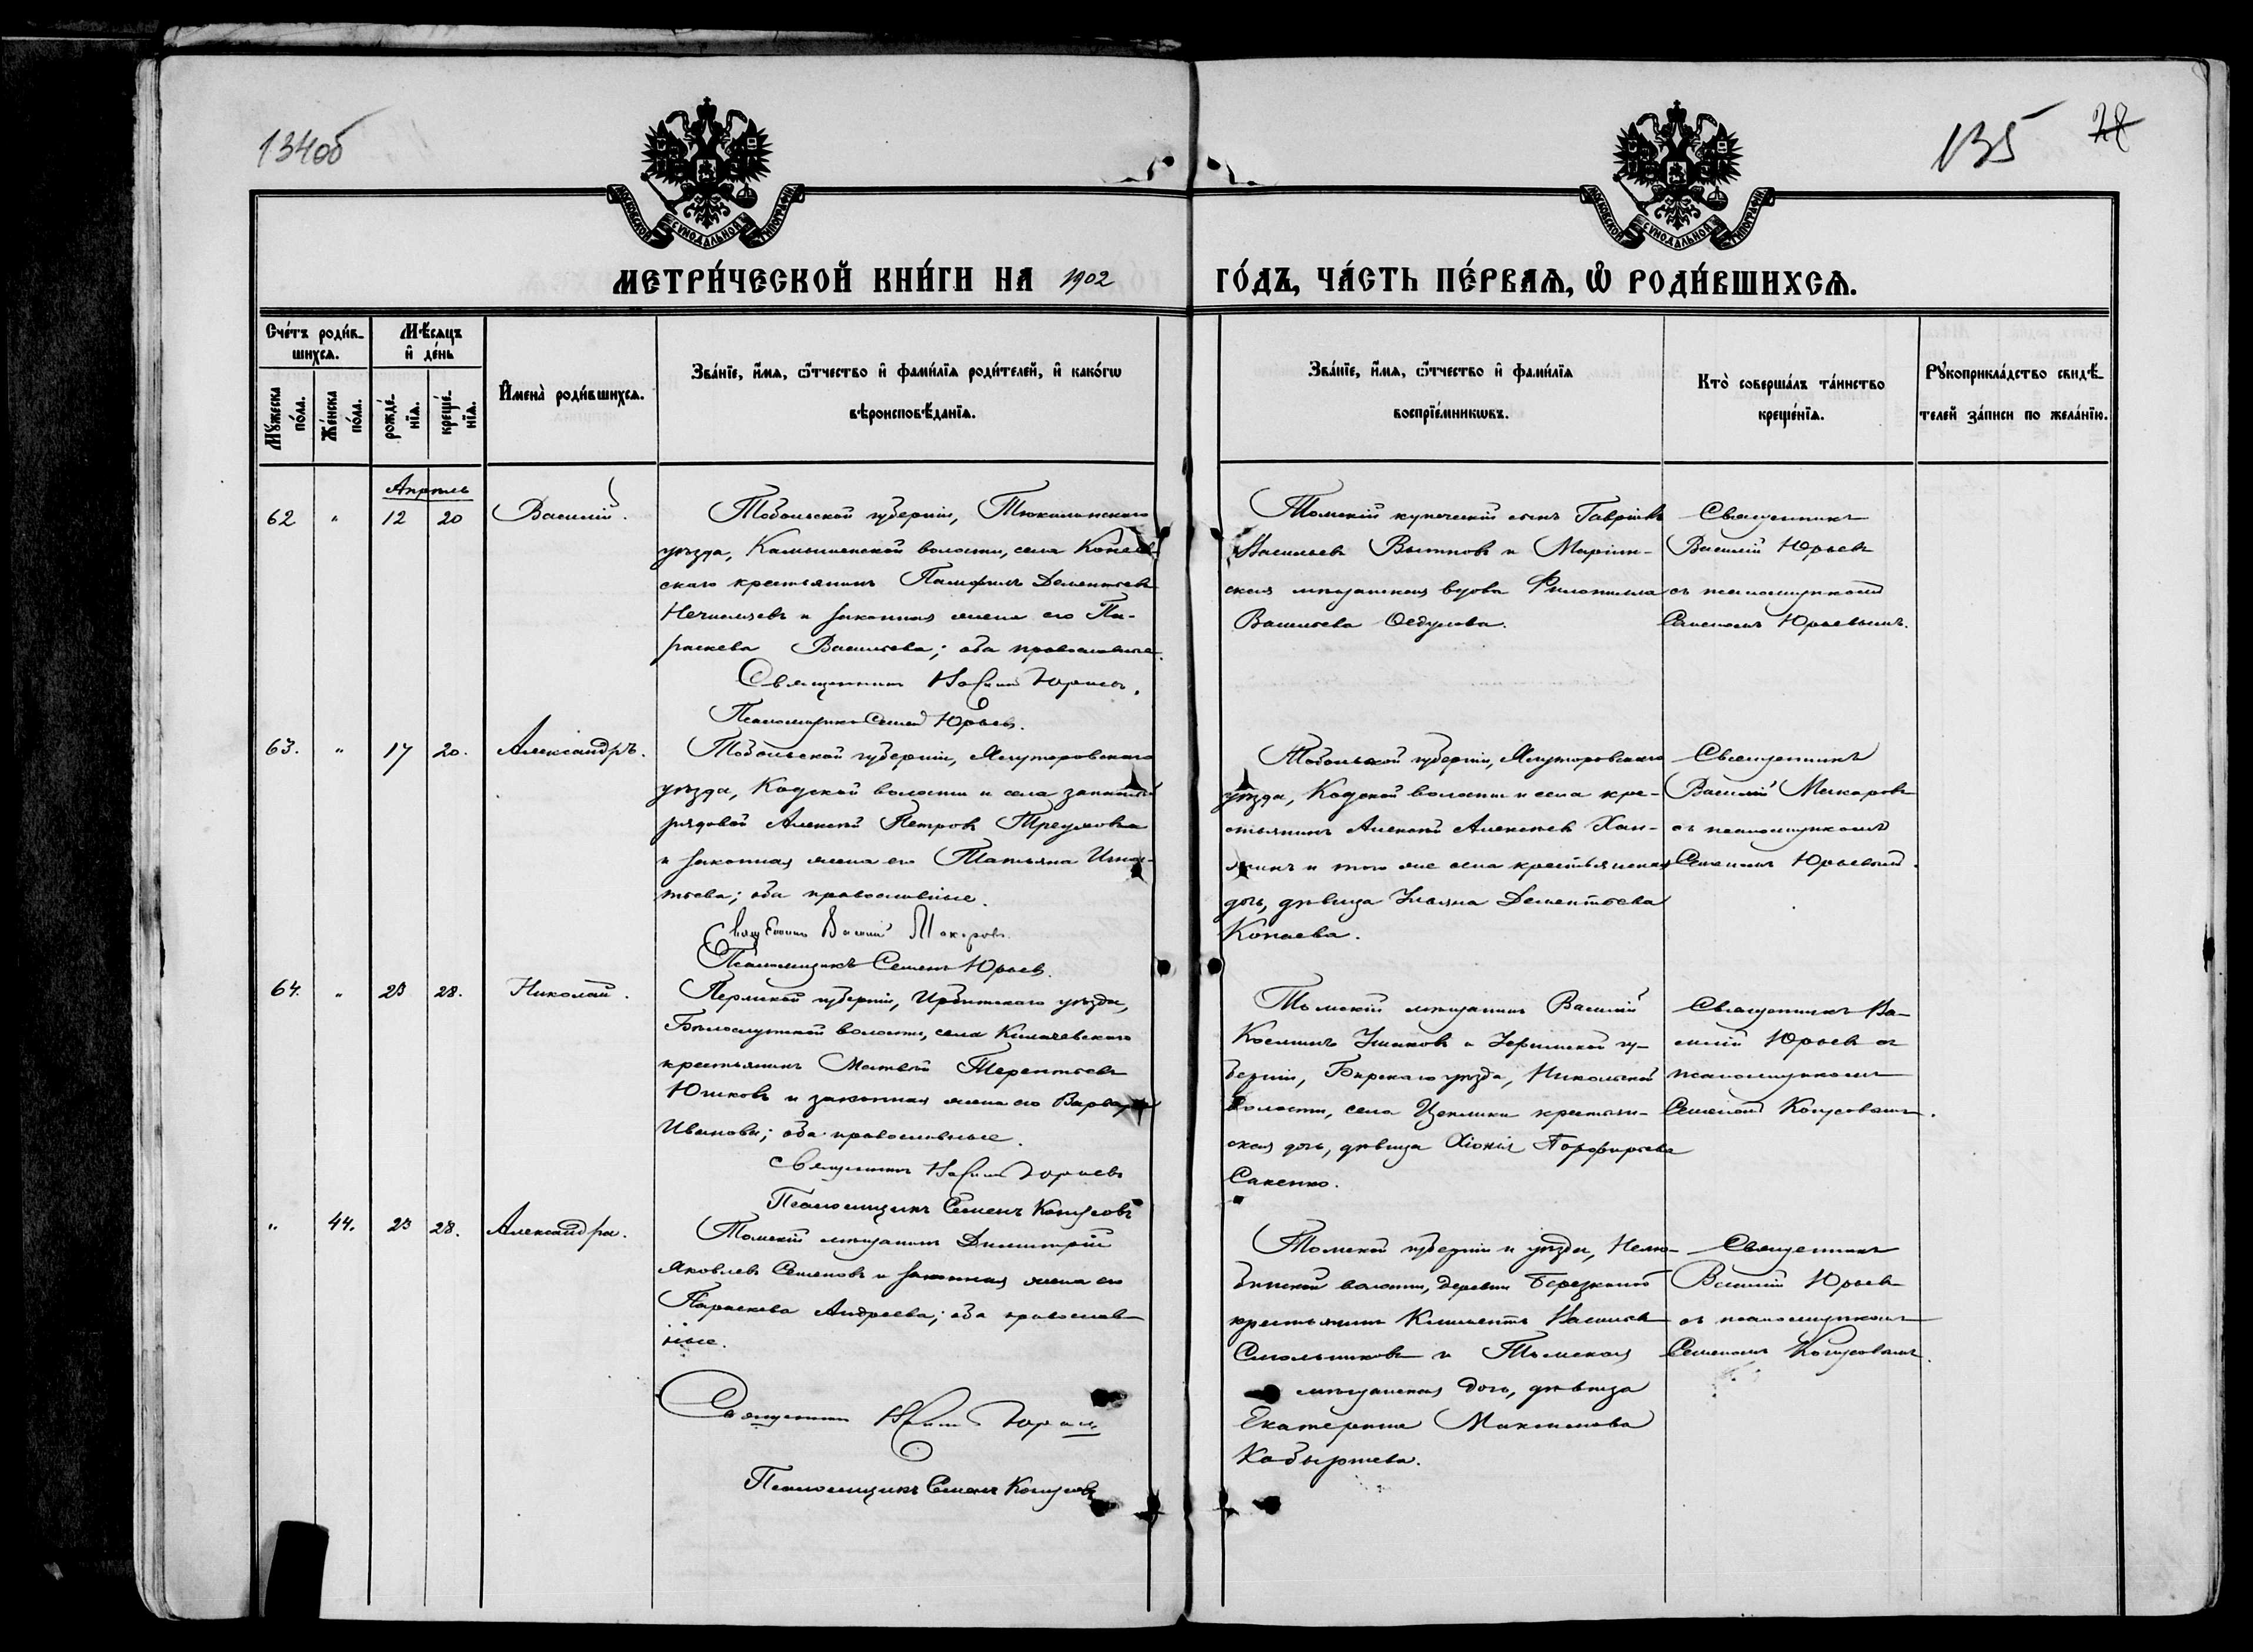 134об
135
28
МОСКОВСКОЙ СѴНОДАЛЬНОЙ ТИПОГРАФІИ
МОСКОВСКОЙ СѴНОДАЛЬНОЙ ТИПОГРАФІИ
МЕТРИ́ЧЕСКОЙ КНИ́ГИ НА 1902 ГО́ДЪ, ЧА́СТЬ ПЕ́РВАѦ, Ѡ РОДИ́ВШИХСѦ.
Сче́тъ роди́в-
шихсѧ.
Мꙋ́жеска по́ла.
Же́нска по́ла.
Мѣ́сѧцъ
и де́нь
рожде́-
нїѧ.
креще́-
нїѧ.
Имена̀ роди́вшихсѧ.
Зва́нїе, и́мѧ, ѻ́тчество и фами́лїѧ роди́телей, и како́гѡ
вѣроисповѣ́данїѧ.
Зва́нїе, и́мѧ, ѻ́тчество и фами́лїѧ
воспрїе́мникѡвъ.
Кто̀ соверша́лъ та́инство
креще́нїѧ.
Рꙋкоприкла́дство свидѣ́-
телей за́писи по жела́нїю.
Апрѣль
62 " 12 20 Василій.
Тобольской губерніи, Тюкалинскаго
уѣзда, Камышенской волости, села
скаго крестьянинъ Памфилъ Дементьевъ
и законная жена его Па-
раскева Васильева; оба православные.
Священникъ Василій Юрьевъ.
Псаломщикъ Семен Юрьевъ.
Томскій купеческій сынъ Гавріилъ
Васильевъ Вытновъ и Маріин-
ская мѣщанская вдова Филонилла
Васильева Федулова.
Священникъ
Василій Юрьевъ
съ псаломщикомъ
Семеномъ Юрьевымъ.
63. " 17 20. Александръ.
Тобольской губерніи, Ялуторовскаго
уѣзда, Кодской волости и села запасный
рядовой Алексѣй Петровъ
и законная жена его Татьяна Игна-
тьева; оба православные.
Священникъ Василий Макаровъ
Псаломщикъ Семенъ Юрьев.
Тобольской губерніи, Ялуторовскаго
уѣзда, Кодской волости и села кре-
стьянинъ Алексѣй Алексѣевъ Хан-
жинъ и того же села крестьянская
дочь, дѣвица Ульяна Дементьева
Копаева.
Священникъ
Василій Макаровъ
съ псаломщикомъ
Семеномъ Юрьевымъ.
64. " 23 28. Николай.
Пермской губерніи, Ирбитскаго уѣзда,
Бѣлослудской волости, села Килачевскаго
крестьянинъ Матвѣй Терентьевъ
Юшковъ и законная жена его Варвара
Иванова; оба православные.
Священникъ Василій Юрьевъ
Псаломщикъ Семенъ Копусовъ
Томскій мѣщанинъ Василій
Косминъ Ушаковъ и Уфимской гу-
берніи, Бирскаго уѣзда, Никольской
волости, села крестьян-
ская дочь, дѣвица Хіонія Порфирьева
Сапенко.
Священникъ Ва-
силій Юрьевъ съ
псаломщикомъ
Семеномъ Копусовымъ.
" 44. 23 28. Александра.
Томскій мѣщанинъ Димитрій
Яковлевъ Семеновъ и законная жена его
Параскева Андреева; оба православ-
ные.
Священникъ Василій Юрьевъ
Псаломщикъ Семенъ Копусовъ
Томской губерніи и уѣзда, Нелю-
бинской волости, деревни Березкиной
крестьянинъ Климентъ Васильевъ
Смольниковъ и Томская
мѣщанская дочь, дѣвица
Екатерина Максимова
Кобыртева.
Священникъ
Василій Юрьевъ
съ псаломщикомъ
Семеномъ Копусовымъ.